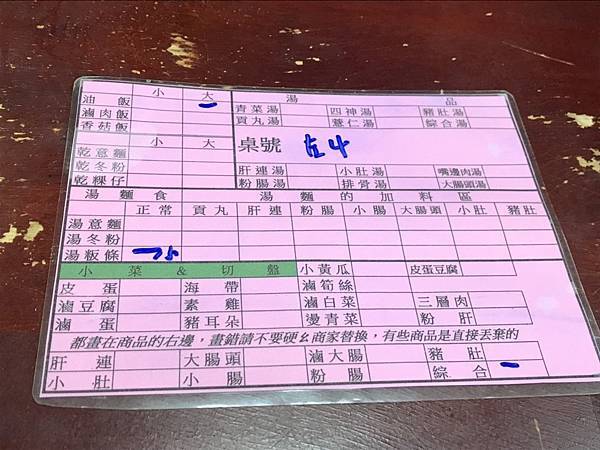 小 大 湯 品
油飯 一 青菜湯 四神湯 豬肚湯
滷肉飯 貢丸湯 薏仁湯 綜合湯
香菇飯
小 大 桌號 左4
乾意麵
乾冬粉 肝連湯 小肚湯 嘴邊肉湯
乾粿仔 粉腸湯 排骨湯 大腸頭湯
湯麵食 湯麵的加料區
正常 貢丸 肝連 粉腸 小腸 大腸頭 小肚 豬肚
湯意麵
湯冬粉
湯粄條 一小
小菜&切盤 小黃瓜 皮蛋豆腐
皮蛋 海帶 滷筍絲
滷豆腐 素雞 滷白菜 三層肉
滷蛋 豬耳朵 燙青菜 粉肝
都畫在商品的右邊,畫錯請不要硬幺商家替換,有些商品是直接丟棄的
肝連 大腸頭 滷大腸 豬肚
小肚 小腸 粉腸 綜合 一